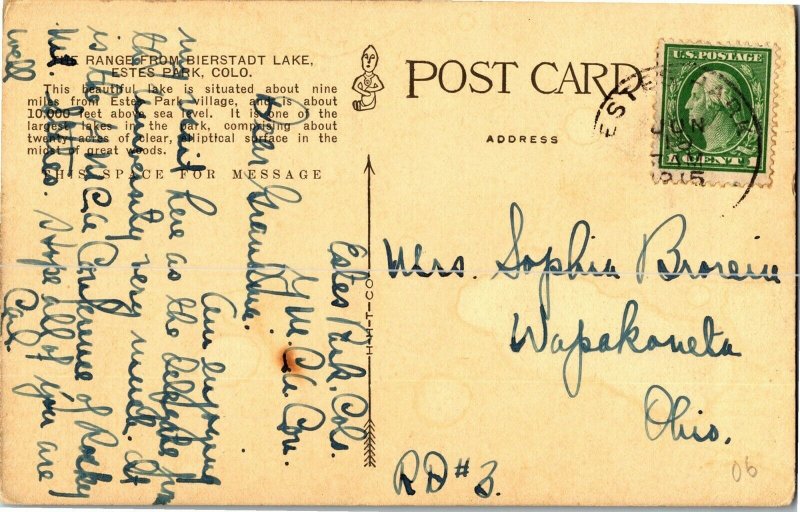 THE RANGE FROM BIERSTADT LAKE,
ESTES PARK, COLO.
This beautiful lake is situated about nine
miles from Estes Park village, and is about
10,000 feet above sea level. It is one of the
largest lakes in the park, comprising about
twenty acres of clear, elliptical surface in the
midst of great woods.
THIS SPACE FOR MESSAGE
POST CARD
ADDRESS
U.S. POSTAGE
1 CENT 1
ESTES PARK
JUN
1915
H-H-T-CO
Estes Park, Colo.
Y.M.C.A. Con.
Dear Grandma.
Am enjoying
my visit here as the delegate from
the university very much. It
is the Y.M.C.A. Conference of Rocky
Mt. States. Hope all of you are
well
Carl.
Mrs. Sophia Brorein
Wapakoneta
Ohio.
RD #3.
06